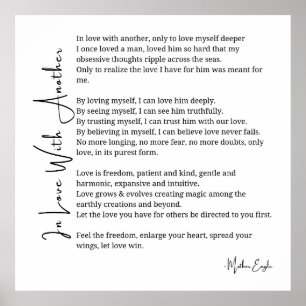 In Love With Another
In love with another, only to love myself deeper
I once loved a man, loved him so hard that my
obsessive thoughts ripple across the seas.
Only to realize the love I have for him was meant for
me.
By loving myself, I can love him deeply.
By seeing myself, I can see him truthfully.
By trusting myself, I can trust him with our love.
By believing in myself, I can believe love never fails.
No more longing, no more fear, no more doubts, only
love, in its purest form.
Love is freedom, patient and kind, gentle and
harmonic, expansive and intuitive.
Love grows & evolves creating magic among the
earthly creations and beyond.
Let the love you have for others be directed to you first.
Feel the freedom, enlarge your heart, spread your
wings, let love win.
-Mother Eagle